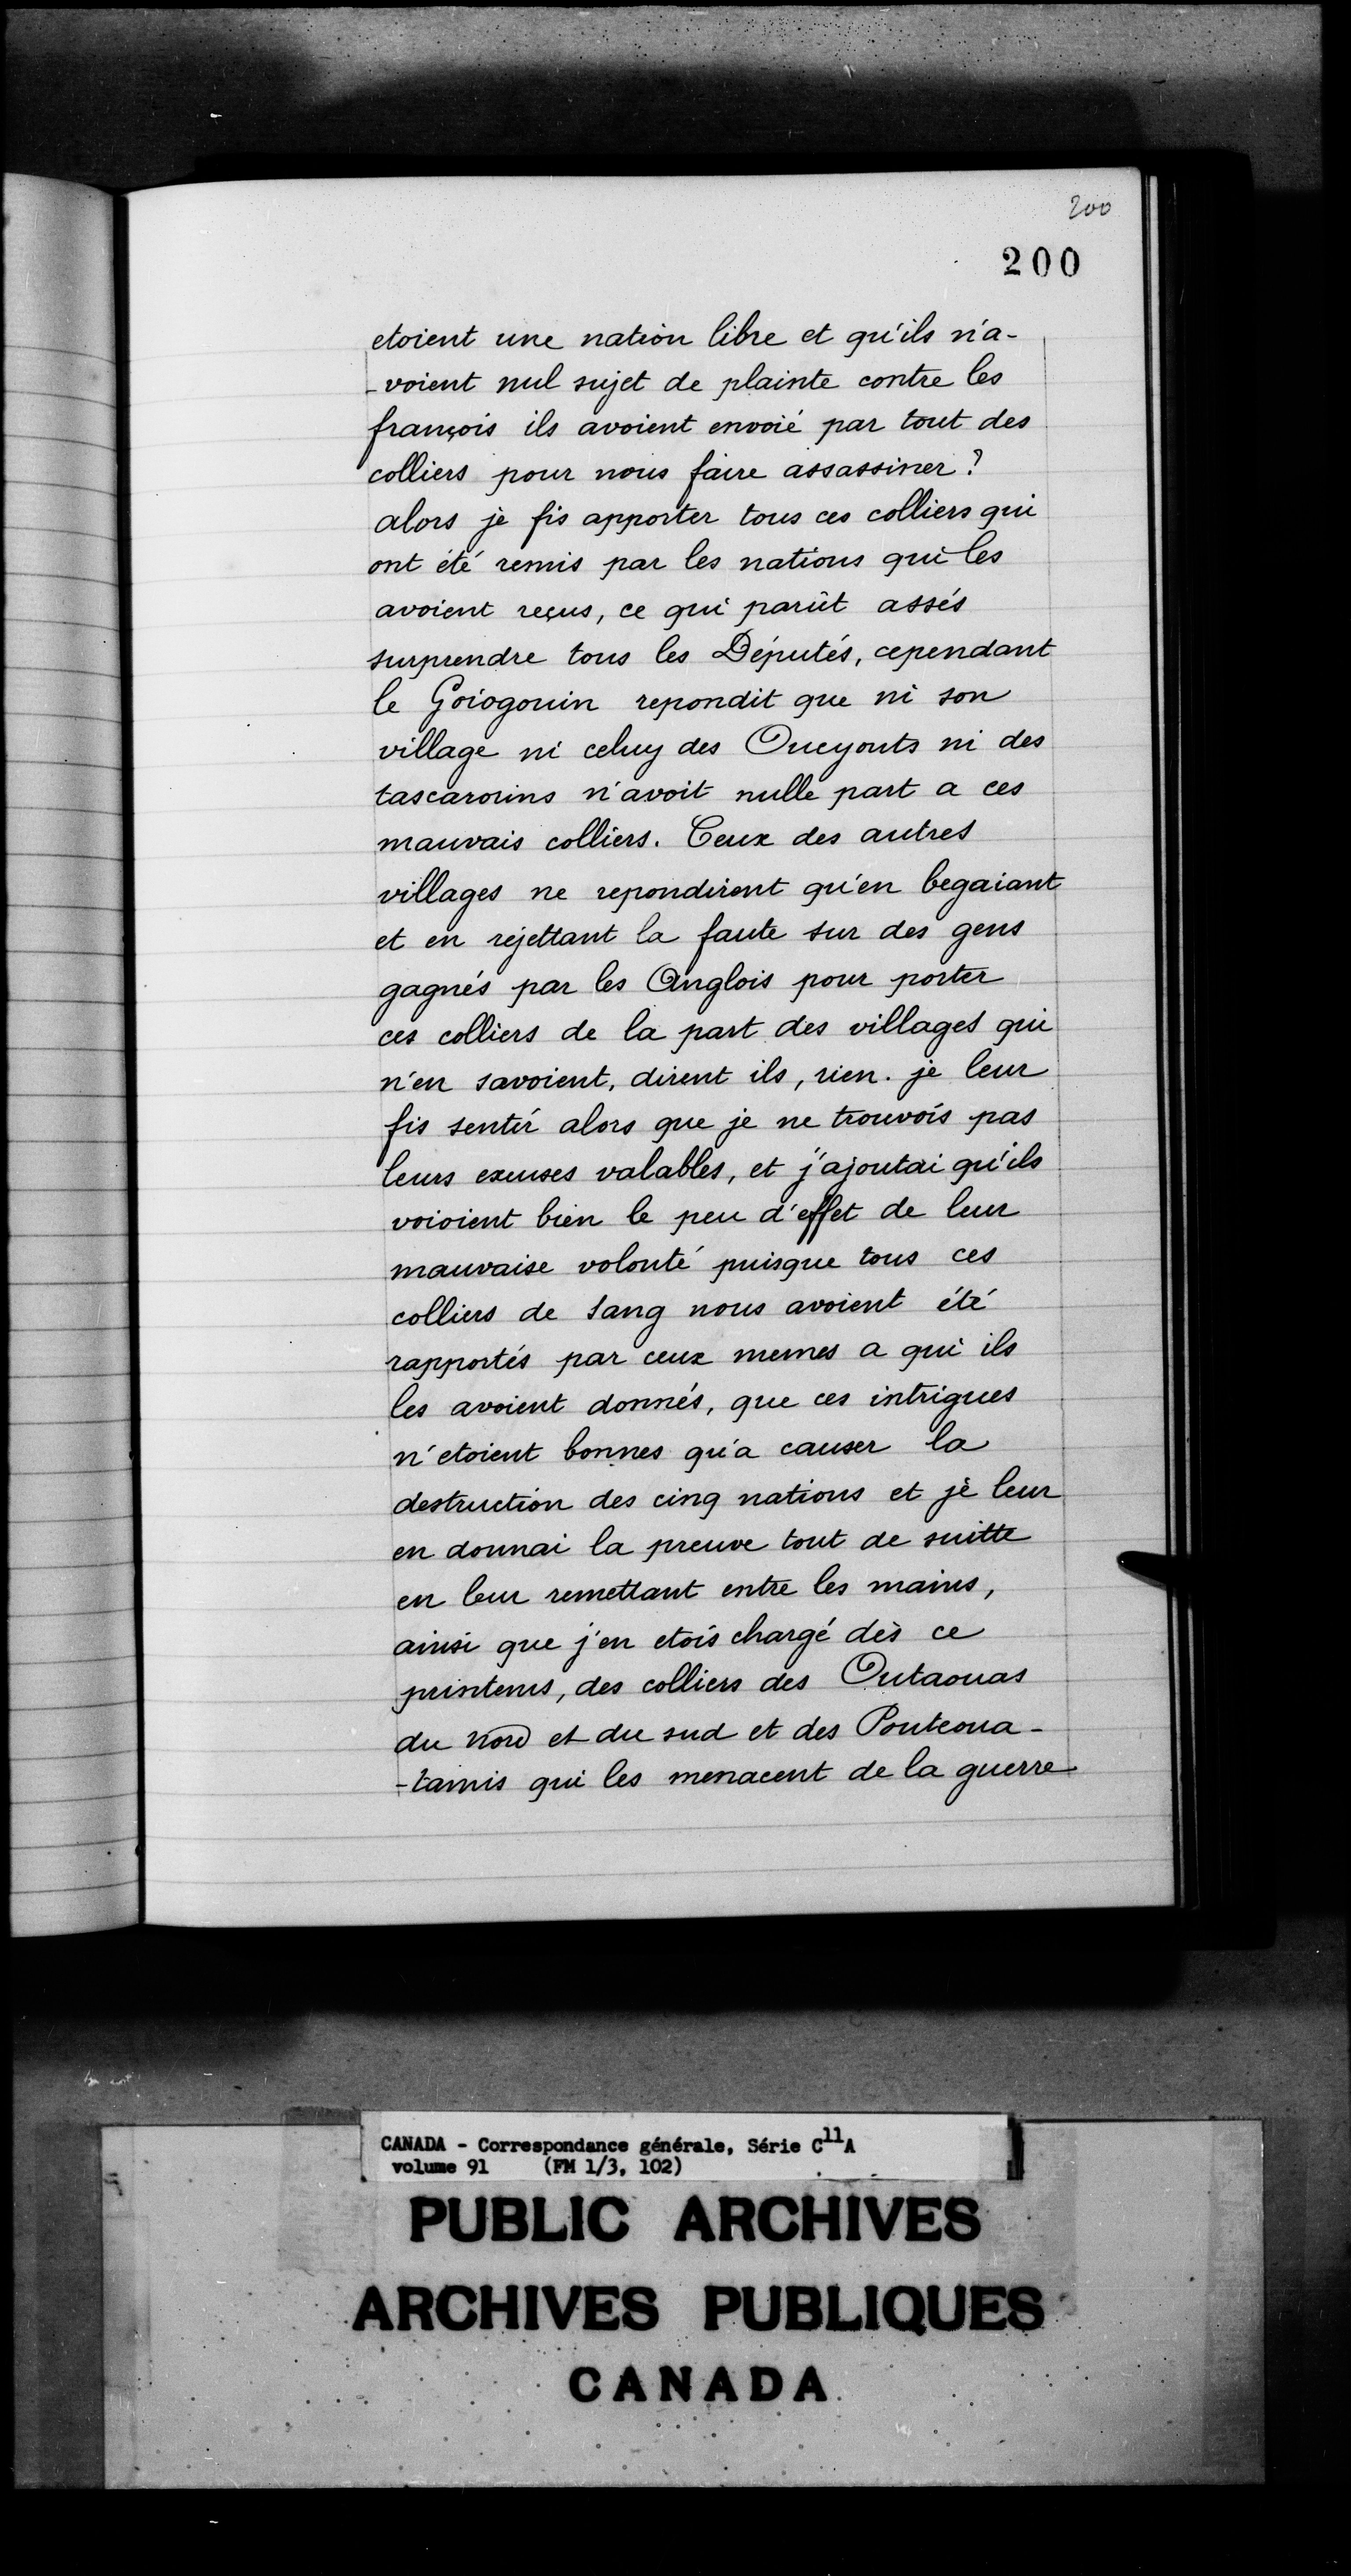 200
200
etoient une nation libre et qu'ils n'a-
-voient nul sujet de plainte contre les
françois ils avoient envoié par tout des
colliers pour nous faire assassiner?
alors je fis apporter tous ces colliers qui
ont été remis par les nations qui les
avoient reçus, ce qui parût assés
surprendre tous les Députés, cependant
le Goiogouin repondit que ni son
village ni celuy des Oneyouts ni des
tascarorins n'avoit nulle part a ces
mauvais colliers. Ceux des autres
villages ne repondirent qu'en begaiant
et en rejettant la faute sur des gens
gagnés par les Anglois pour porter
ces colliers de la part des villages qui
n'en savoient, dirent ils, rien. je leur
fis sentir alors que je ne trouvois pas
leurs excuses valables, et j'ajoutai qu'ils
voioient bien le peu d'effet de leur
mauvaise volonté puisque tous ces
colliers de sang nous avoient été
rapportés par ceux memes a qui ils
les avoient donnés, que ces intrigues
n'etoient bonnes qu'a causer la
destruction des cinq nations et je leur
en donnai la preuve tout de suitte
en leur remettant entre les mains,
ainsi que j'en etois chargé dès ce
printems, des colliers des Outaouas
du nord et du sud et des Pouteoua-
-tamis qui les menacent de la guerre
CANADA - Correspondance générale, Série C11A
volume 91 (FM 1/3, 102)
PUBLIC ARCHIVES
ARCHIVES PUBLIQUES
CANADA